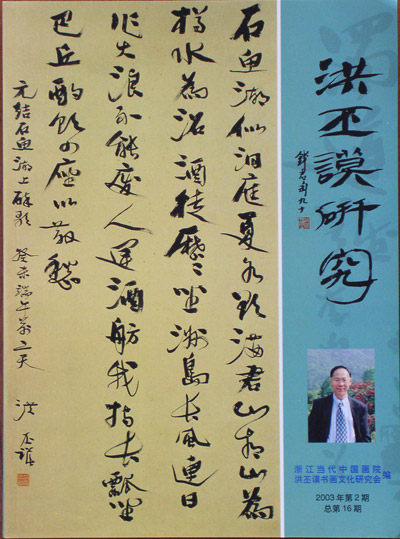 洪丕謨研究
錢君匋九十
石魚湖似洞庭夏水欲滿君山青山為
樽水為沼酒徒歷々坐洲島長風連日
作大浪不能廢人運酒舫我持長瓢坐
巴丘酌飲四座以散愁
元结石魚湖上醉歌 癸未端午前二天 洪丕謨
浙江当代中国画院
洪丕谟书画文化研究会 编
2003年第2期
总第16期